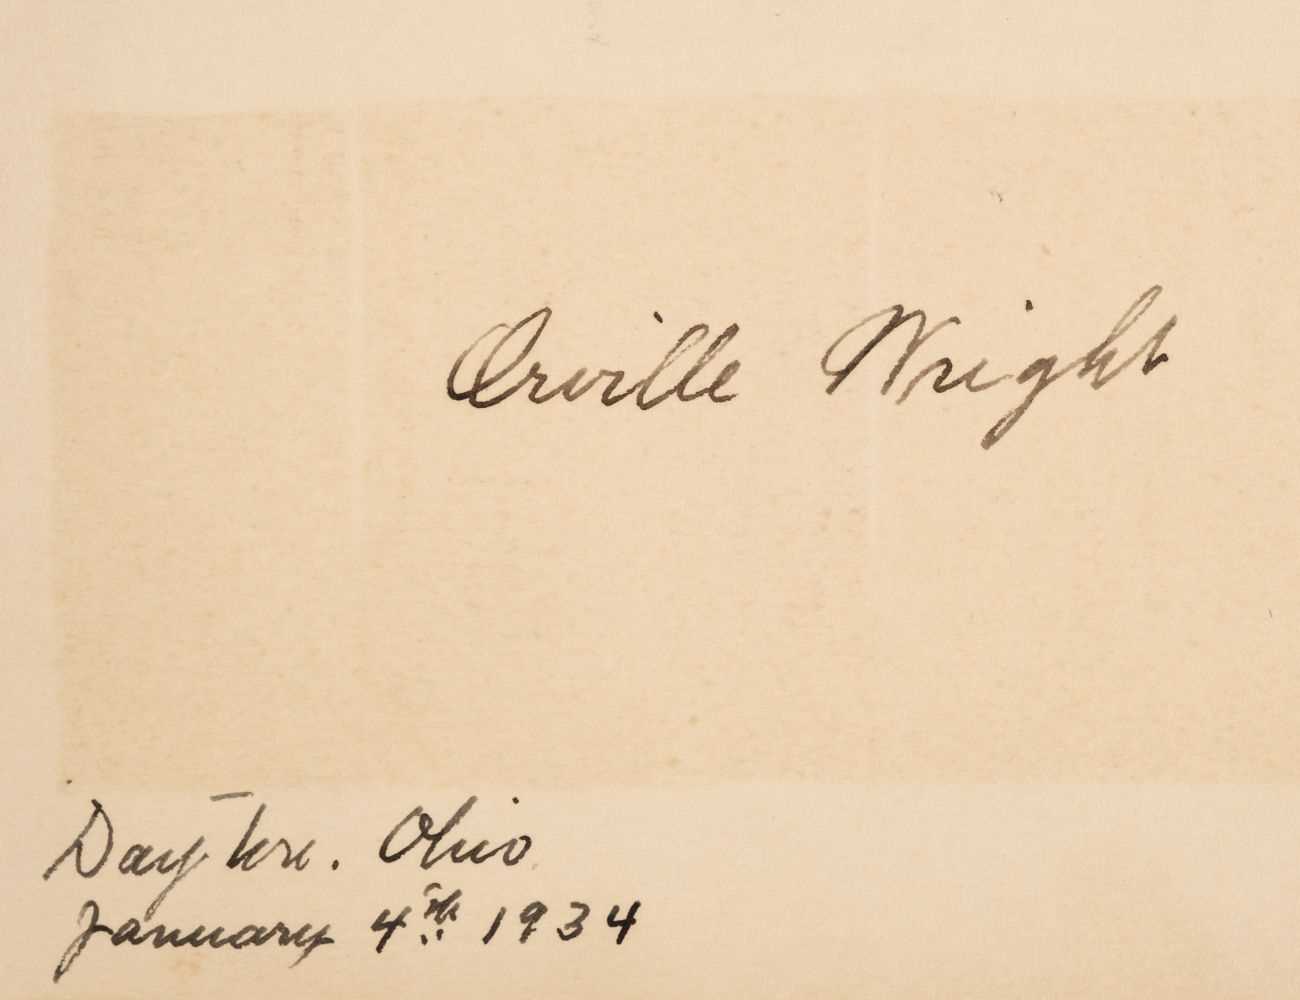 Orville Wright
Dayton. Ohio
January 4th 1934